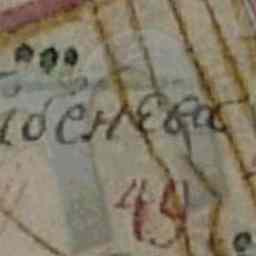 юснева
49